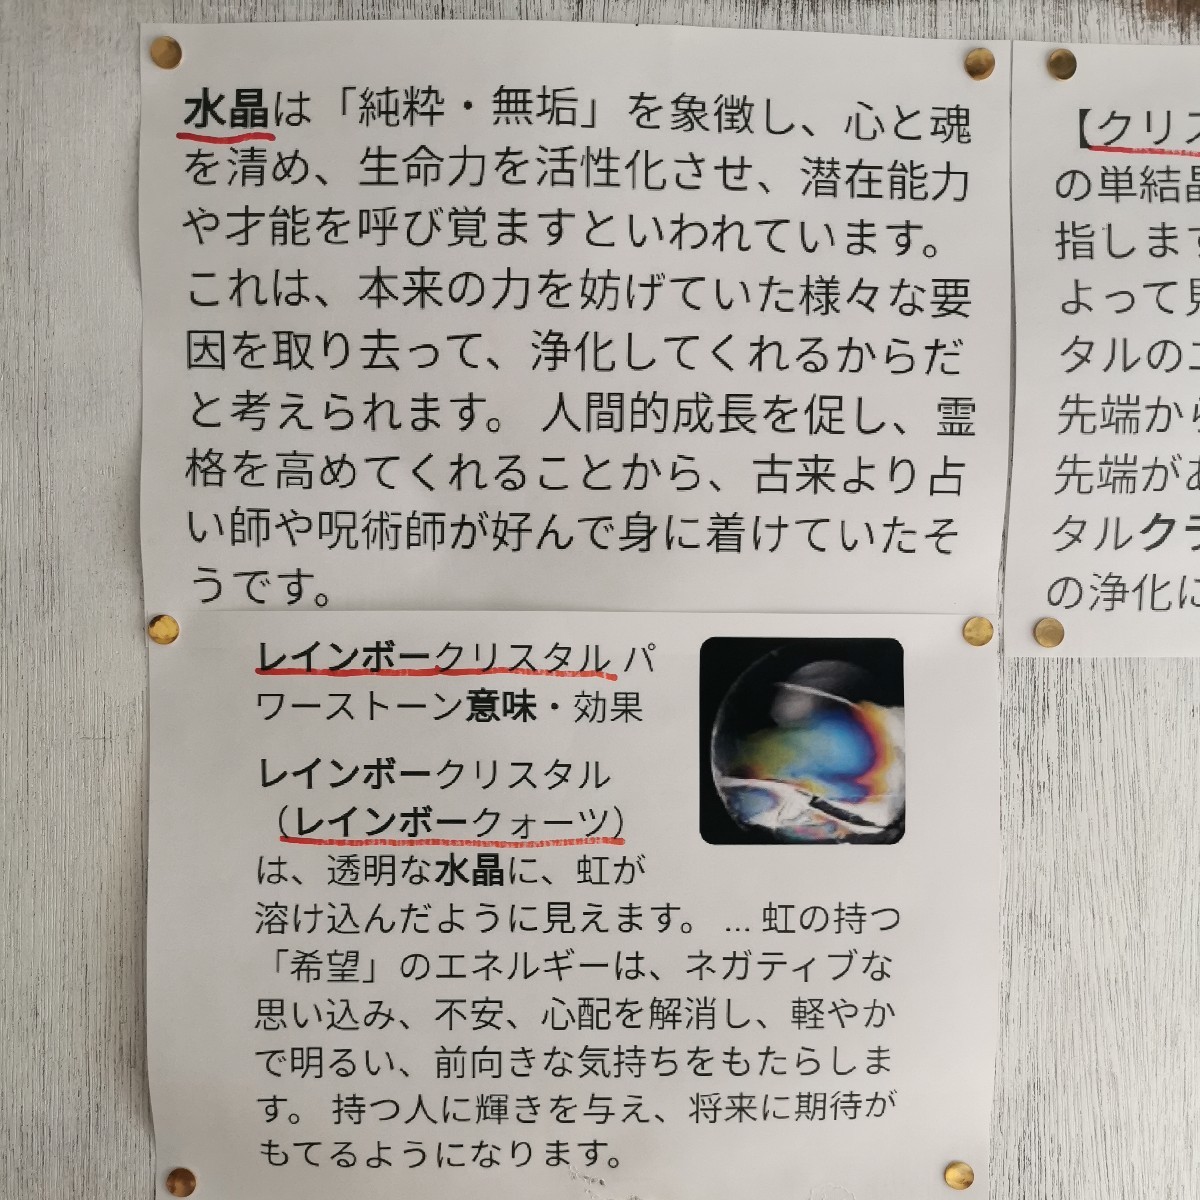 水晶は「純粋・無垢」を象徴し、心と魂
を清め、生命力を活性化させ、潜在能力
や才能を呼び覚ますといわれています。
これは、本来の力を妨げていた様々な要
因を取り去って、浄化してくれるからだ
と考えられます。 人間的成長を促し、霊
格を高めてくれることから、古来より占
い師や呪術師が好んで身に着けていたそ
うです。
レインボークリスタル パ
ワーストーン意味・効果
レインボークリスタル
（レインボークォーツ）
は、透明な水晶に、虹が
溶け込んだように見えます。 ... 虹の持つ
「希望」のエネルギーは、ネガティブな
思い込み、不安、心配を解消し、軽やか
で明るい、前向きな気持ちをもたらしま
す。 持つ人に輝きを与え、将来に期待が
もてるようになります。
【クリス
の単結晶
指します
よって見
タルのエ
先端から
先端があ
タルクラ
の浄化に